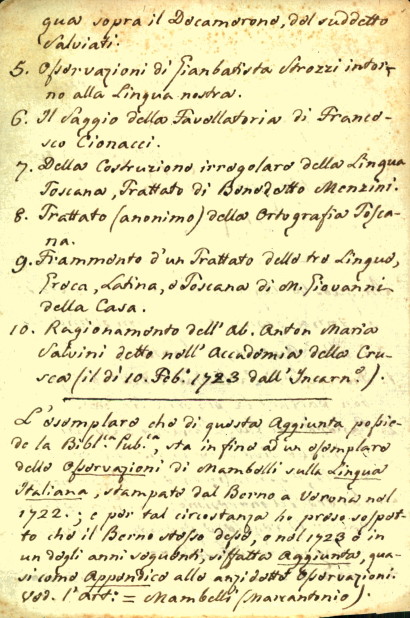 gua sopra il Decamerone, del suddetto
Salviati.
5. Osservazioni di Gianbatista Strozzi intor-
no alla Lingua nostra.
6. Il Saggio della Favellatoria di France-
sco Cionacci.
7. Della Costruzione irregolare della Lingua
Toscana, Trattato di Benedetto Menzini.
8. Trattato (anonimo) della Ortografia Tosca-
na.
9. Frammento d'un Trattato delle tre Lingue,
Greca, Latina, e Toscana di M. Giovanni
della Casa.
10. Ragionamento dell'Ab. Anton Maria
Salvini detto nell'Accademia della Cru-
sca (il dì 10. Feb.o 1723 dall'Incarn.e).
L'esemplare che di questa Aggiunta possie-
de la Bibl.ca Pub.ca, sta in fine ad un esemplare
delle Osservazioni di Mambelli sulla Lingua
Italiana, stampate dal Berno a Verona nel
1722.; e per tal circostanza ho preso sospet-
to che il Berno stesso desse, o nel 1723 o in
un degli anni seguenti, siffatta Aggiunta, qua-
si come Appendice alle anzidette Osservazioni.
Ved. l'Art: = Mambelli (Marcantonio).